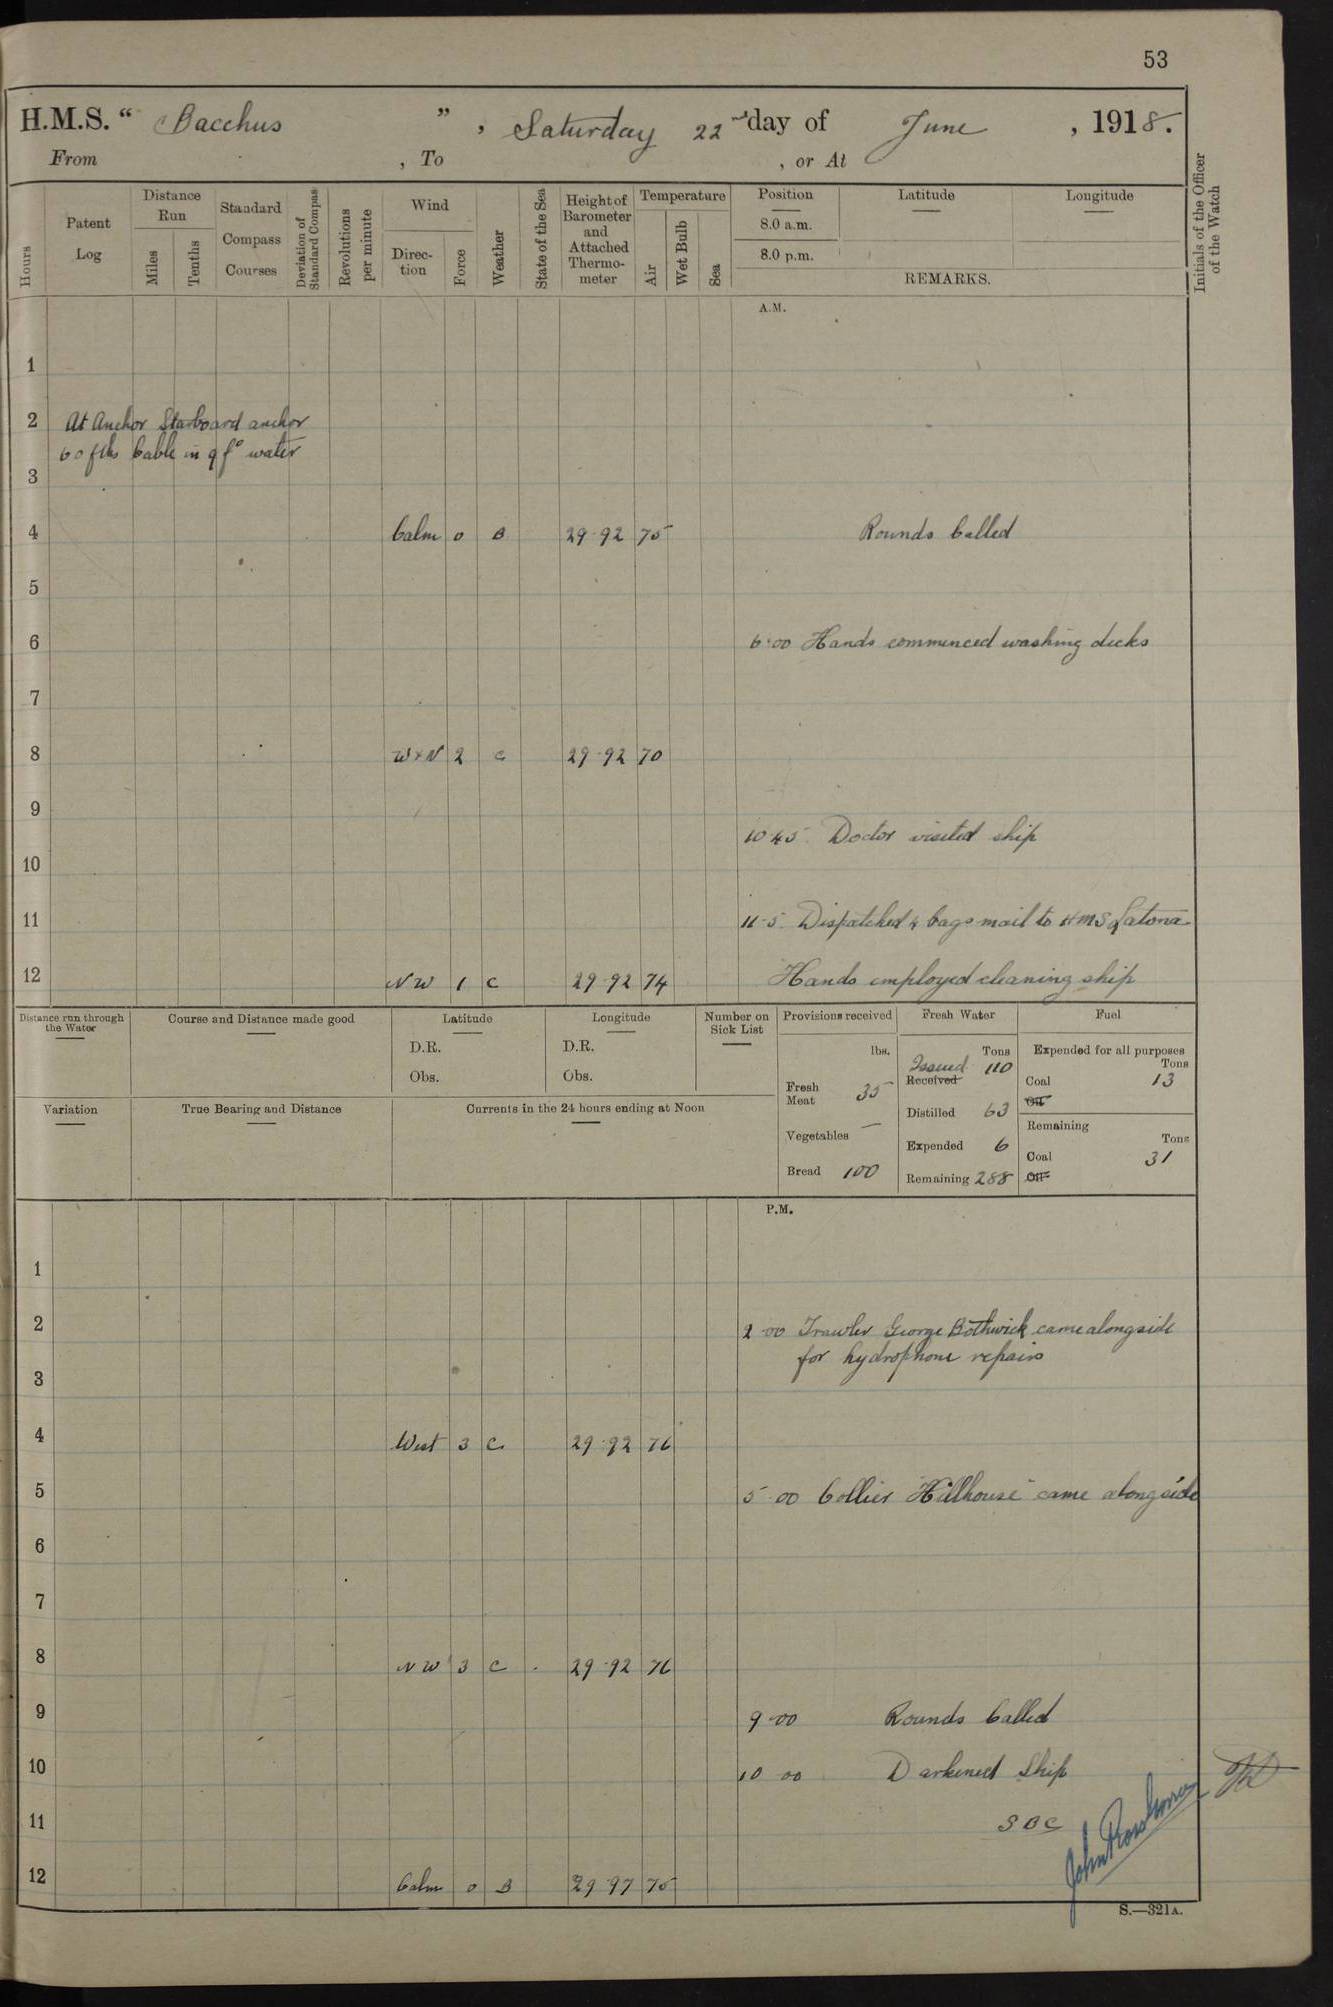 53
H.M.S. “ Bacchus ” , Saturday 22nd day of June , 1918.
From , To , or At
Hours
Patent Log
Distance Run
Miles
Tenths
Standard Compass Courses
Deviation of Standard Compass
Revolutions per minute
Wind
Direction
Force
Weather
State of the Sea
Height of Barometer and Attached Thermometer
Temperature
Air
Wet Bulb
Sea
Position
8.0 a.m.
8.0 p.m.
Latitude
Longitude
REMARKS.
Initials of the Officer of the Watch
A.M.
1
2 At Anchor Starboard anchor
60 fths Cable in 9 f° water
3
4 Calm 0 B 29.92 75 Rounds Called
5
6 6.00 Hands commenced washing decks
7
8 W x N 2 C 29.92 70
9
10.45 Doctor visited ship
10
11 11-5 Dispatched 4 bags mail to HMS Latona
12 NW 1 C 29.92 74 Hands employed cleaning ship
Distance run through the Water
Course and Distance made good
Latitude
D.R.
Obs.
Longitude
D.R.
Obs.
Number on Sick List
Provisions received
lbs.
Fresh Meat 35
Vegetables —
Bread 100
Fresh Water
Tons
Issued 110
Received
Distilled 63
Expended 6
Remaining 288
Fuel
Expended for all purposes
Tons
Coal 13
Oil
Remaining
Tons
Coal 31
Oil
Variation
True Bearing and Distance
Currents in the 24 hours ending at Noon
P.M.
1
2 2.00 Trawler George Bothwick came alongside
for hydrophone repairs
3
4 West 3 C 29.92 76
5 5.00 Collier "Hillhouse" came alongside
6
7
8 NW 3 C 29.92 76
9 9.00 Rounds Called
10 10 00 Darkened Ship
11 SBC
12 Calm 0 B 29.97 75
S.—321A.